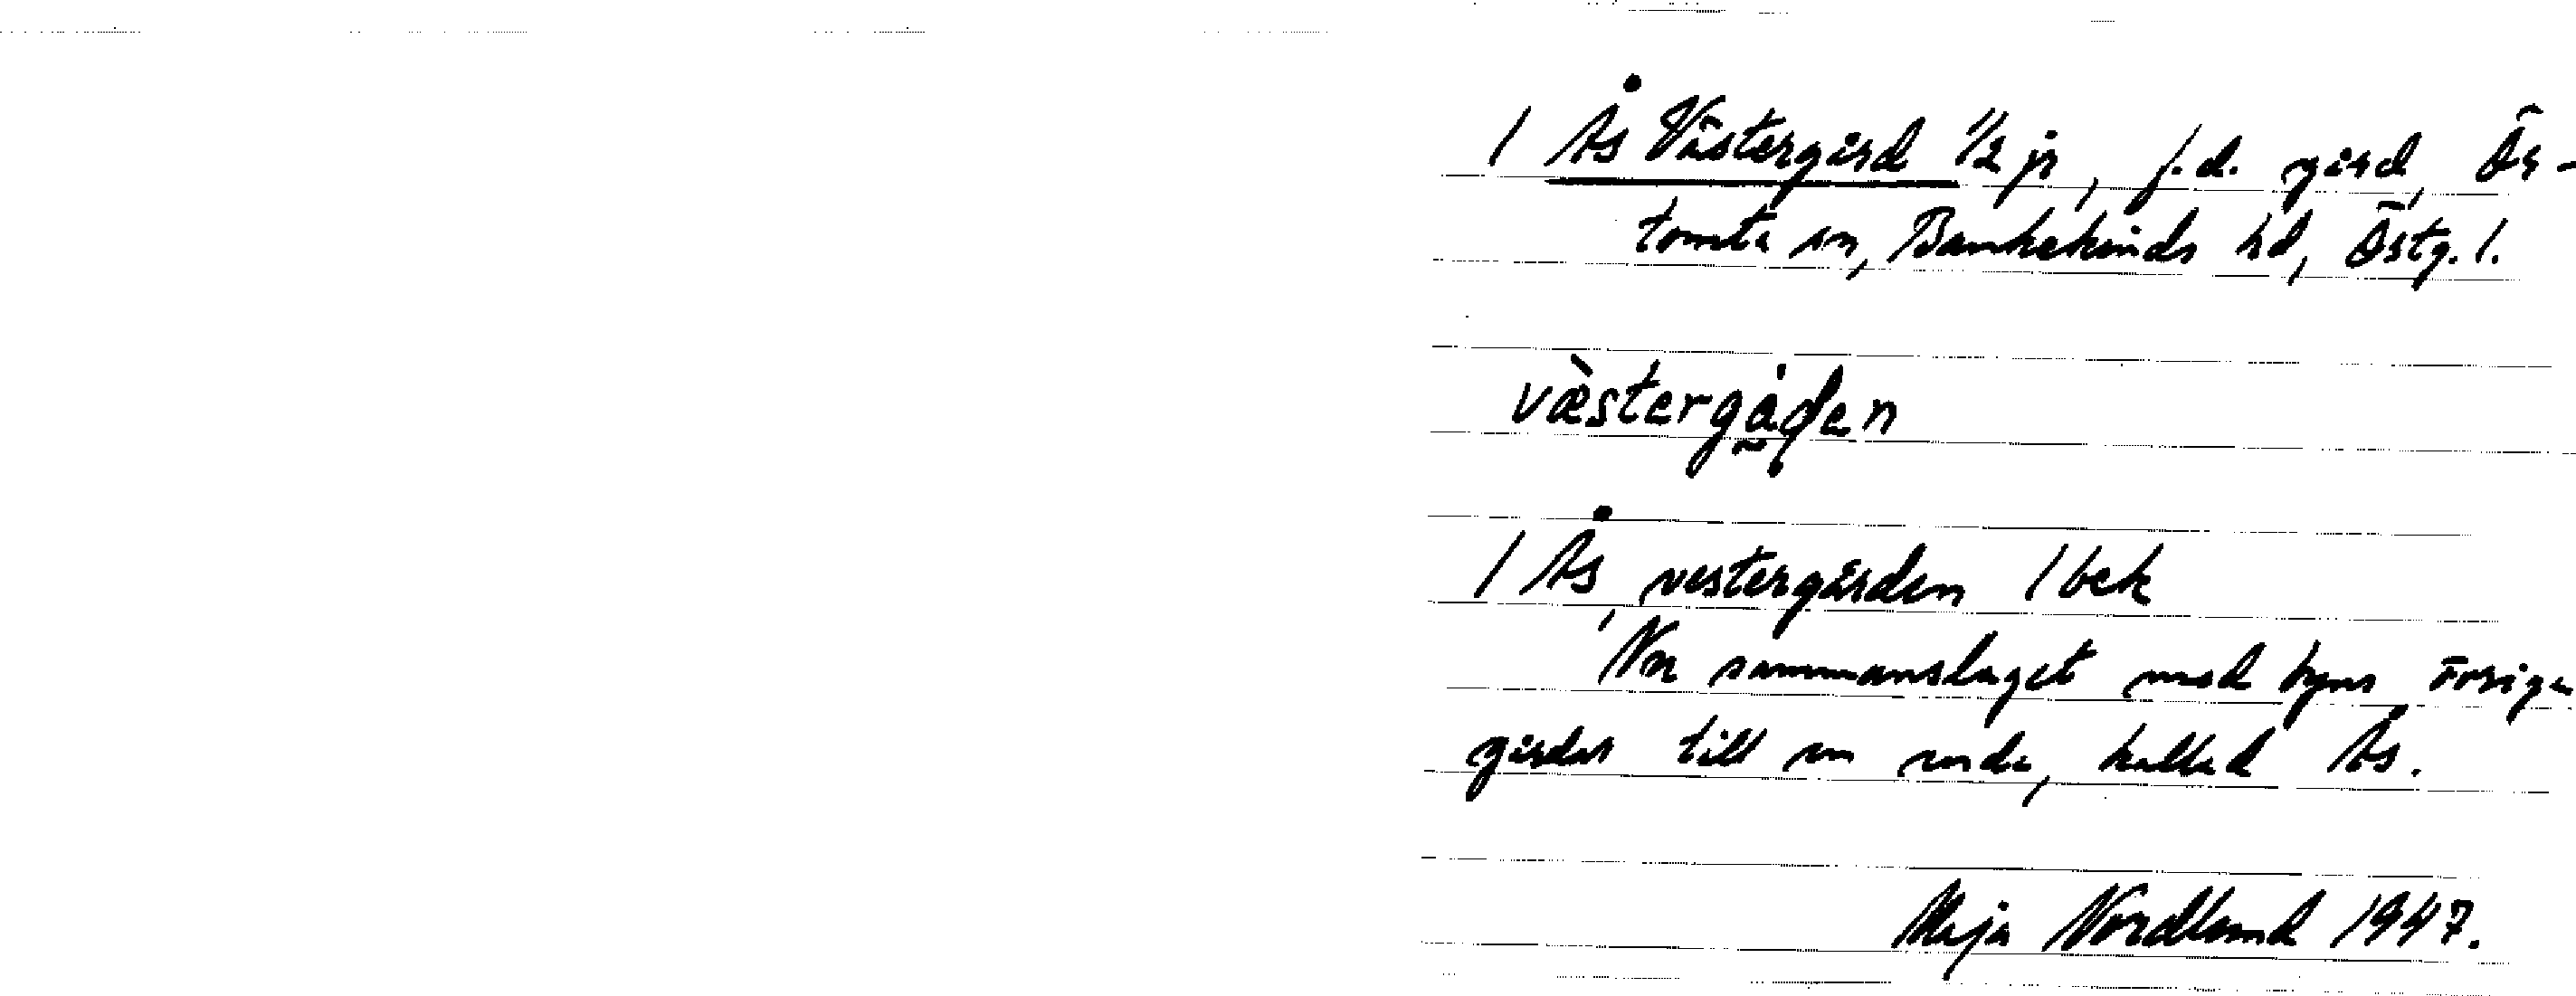 / Ås Västergård 1/2 jr, f.d. gård, Ör-
tomta sn, Bankekinds hd, Östg. l.
västergåđen
/ Ås vestergården / bek
Nu sammanslaget med byns övriga
gårdar till en enda, kallad Ås.
Maja Nordlund 1947.